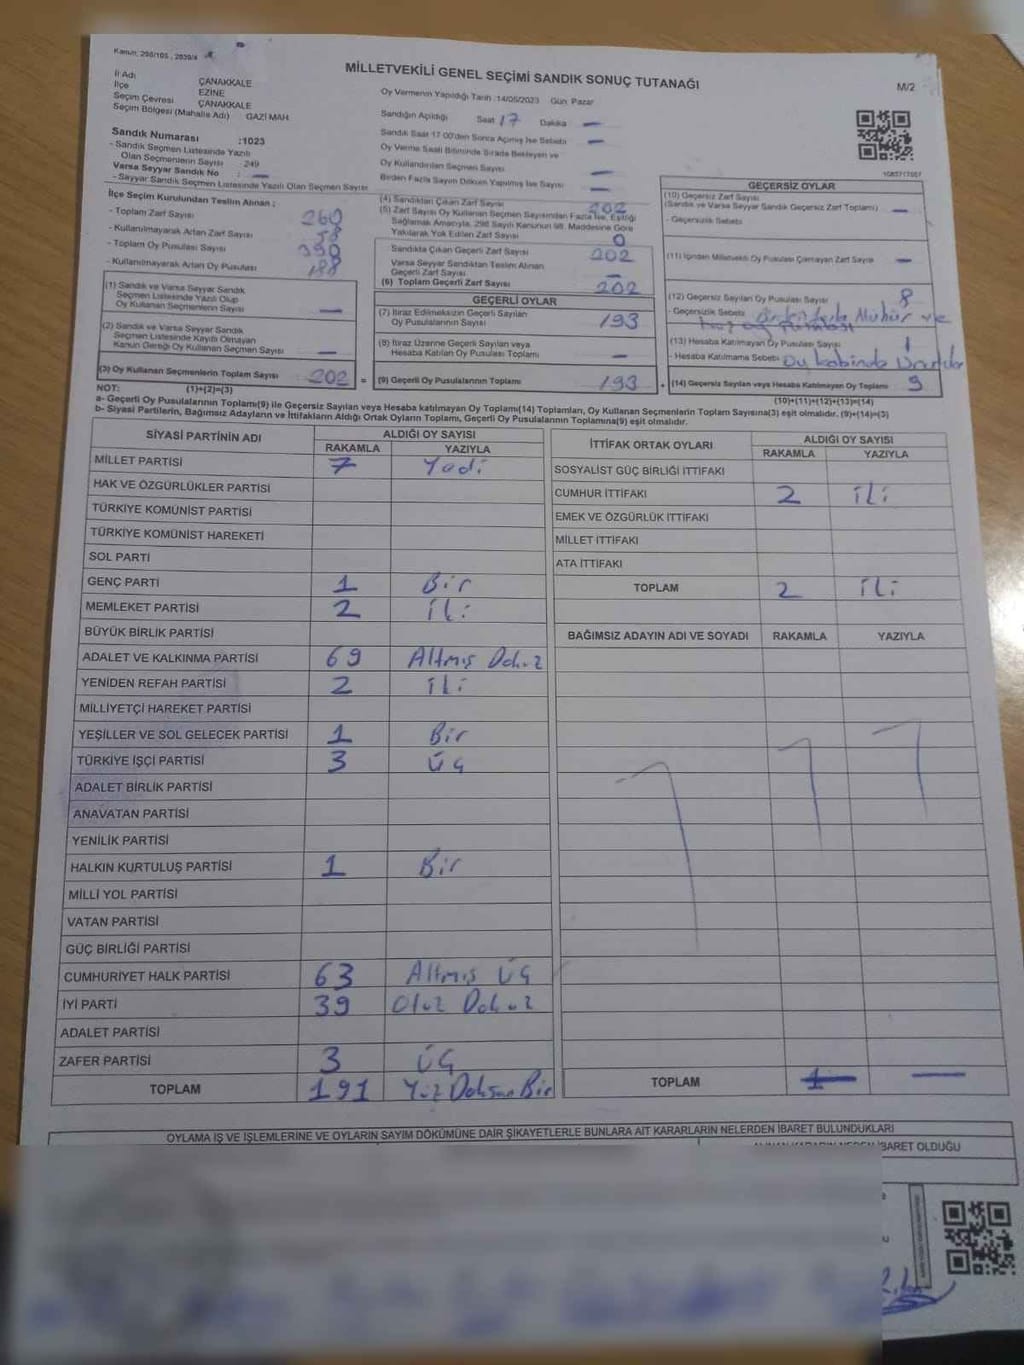 Kanun: 298/105 , 2839/4
MİLLETVEKİLİ GENEL SEÇİMİ SANDIK SONUÇ TUTANAĞI
M/2
İl Adı ÇANAKKALE
İlçe EZİNE
Seçim Çevresi ÇANAKKALE
Seçim Bölgesi (Mahalle Adı) GAZİ MAH.
Oy Vermenin Yapıldığı Tarih :14/05/2023 Gün Pazar
Sandığın Açıldığı Saat 17 Dakika —
Sandık Numarası :1023
- Sandık Seçmen Listesinde Yazılı
Olan Seçmenlerin Sayısı : 249
Varsa Seyyar Sandık No : —
- Seyyar Sandık Seçmen Listesinde Yazılı Olan Seçmen Sayısı
Sandık Saat 17.00'den Sonra Açılmış İse Sebebi —
Oy Verme Saati Bitiminde Sırada Bekleyen ve
Oy Kullandırılan Seçmen Sayısı —
Birden Fazla Sayım Döküm Yapılmış İse Sayısı —
İlçe Seçim Kurulundan Teslim Alınan ;
- Toplam Zarf Sayısı 260
- Kullanılmayarak Artan Zarf Sayısı 58
- Toplam Oy Pusulası Sayısı 390
- Kullanılmayarak Artan Oy Pusulası 188
(1) Sandık ve Varsa Seyyar Sandık
Seçmen Listesinde Yazılı Olup
Oy Kullanan Seçmenlerin Sayısı —
(2) Sandık ve Varsa Seyyar Sandık
Seçmen Listesinde Kayıtlı Olmayan
Kanun Gereği Oy Kullanan Seçmen Sayısı —
(3) Oy Kullanan Seçmenlerin Toplam Sayısı 202
(4) Sandıktan Çıkan Zarf Sayısı 202
(5) Zarf Sayısı Oy Kullanan Seçmen Sayısından Fazla İse, Eşitliği
Sağlamak Amacıyla, 298 Sayılı Kanunun 98. Maddesine Göre
Yakılarak Yok Edilen Zarf Sayısı 0
Sandıkta Çıkan Geçerli Zarf Sayısı 202
Varsa Seyyar Sandıktan Teslim Alınan
Geçerli Zarf Sayısı —
(6) Toplam Geçerli Zarf Sayısı 202
GEÇERLİ OYLAR
(7) İtiraz Edilmeksizin Geçerli Sayılan
Oy Pusulalarının Sayısı 193
(8) İtiraz Üzerine Geçerli Sayılan veya
Hesaba Katılan Oy Pusulası Toplamı —
= (9) Geçerli Oy Pusulalarının Toplamı 193
GEÇERSİZ OYLAR
(10) Geçersiz Zarf Sayısı
(Sandık ve Varsa Seyyar Sandık Geçersiz Zarf Toplamı) —
- Geçersizlik Sebebi
(11) İçinden Milletvekili Oy Pusulası Çıkmayan Zarf Sayısı —
(12) Geçersiz Sayılan Oy Pusulası Sayısı 8
- Geçersizlik Sebebi Mühür
(13) Hesaba Katılmayan Oy Pusulası Sayısı 1
- Hesaba Katılmama Sebebi Oy kabinde
+ (14) Geçersiz Sayılan veya Hesaba Katılmayan Oy Toplamı 9
NOT: (1)+(2)=(3)
(10)+(11)+(12)+(13)=(14)
a- Geçerli Oy Pusulaları Toplamı(9) ile Geçersiz Sayılan veya Hesaba katılmayan Oy Toplamı(14) Toplamları, Oy Kullanan Seçmenlerin Toplam Sayısına(3) eşit olmalıdır. (9)+(14)=(3)
b- Siyasi Partilerin, Bağımsız Adayların ve İttifakların Aldığı Ortak Oyların Toplamı, Geçerli Oy Pusulalarının Toplamına(9) eşit olmalıdır.
SİYASİ PARTİNİN ADI ALDIĞI OY SAYISI
RAKAMLA YAZIYLA
MİLLET PARTİSİ 7 Yedi
HAK VE ÖZGÜRLÜKLER PARTİSİ
TÜRKİYE KOMÜNİST PARTİSİ
TÜRKİYE KOMÜNİST HAREKETİ
SOL PARTİ
GENÇ PARTİ 1 Bir
MEMLEKET PARTİSİ 2 İki
BÜYÜK BİRLİK PARTİSİ
ADALET VE KALKINMA PARTİSİ 69 Altmış Dokuz
YENİDEN REFAH PARTİSİ 2 İki
MİLLİYETÇİ HAREKET PARTİSİ
YEŞİLLER VE SOL GELECEK PARTİSİ 1 Bir
TÜRKİYE İŞÇİ PARTİSİ 3 Üç
ADALET BİRLİK PARTİSİ
ANAVATAN PARTİSİ
YENİLİK PARTİSİ
HALKIN KURTULUŞ PARTİSİ 1 Bir
MİLLİ YOL PARTİSİ
VATAN PARTİSİ
GÜÇ BİRLİĞİ PARTİSİ
CUMHURİYET HALK PARTİSİ 63 Altmış Üç
İYİ PARTİ 39 Otuz Dokuz
ADALET PARTİSİ
ZAFER PARTİSİ 3 Üç
TOPLAM 191 Yüz Doksan Bir
İTTİFAK ORTAK OYLARI ALDIĞI OY SAYISI
RAKAMLA YAZIYLA
SOSYALİST GÜÇ BİRLİĞİ İTTİFAKI
CUMHUR İTTİFAKI 2 İki
EMEK VE ÖZGÜRLÜK İTTİFAKI
MİLLET İTTİFAKI
ATA İTTİFAKI
TOPLAM 2 İki
BAĞIMSIZ ADAYIN ADI VE SOYADI RAKAMLA YAZIYLA
TOPLAM — —
OYLAMA İŞ VE İŞLEMLERİNE VE OYLARIN SAYIM DÖKÜMÜNE DAİR ŞİKAYETLERLE BUNLARA AİT KARARLARIN NELERDEN İBARET BULUNDUKLARI
İBARET OLDUĞU